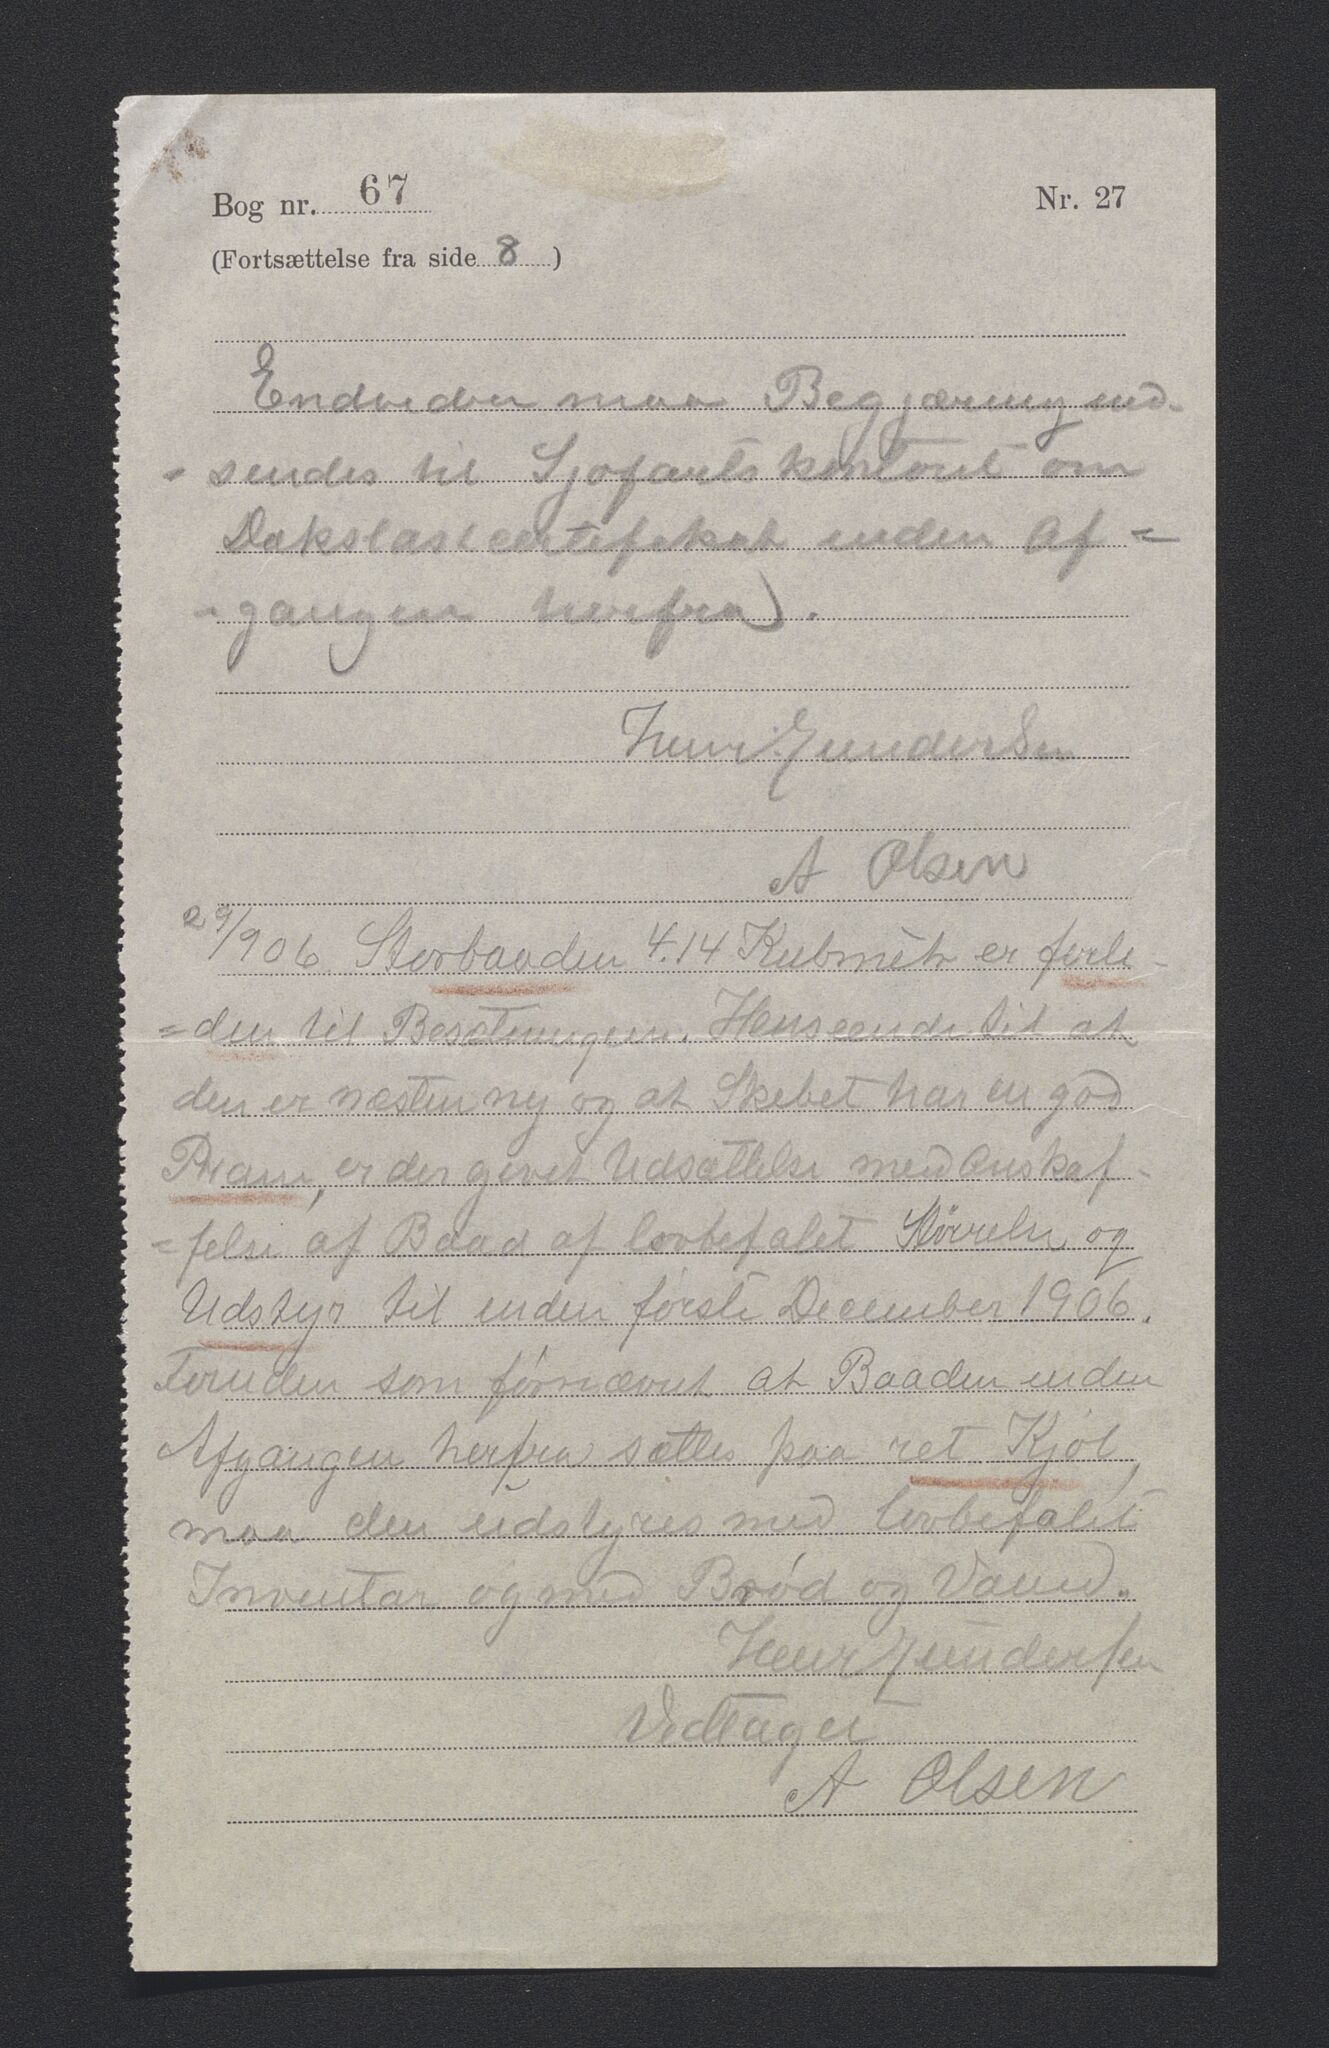 Bog nr. 67
Nr. 27
(Fortsættelse fra side 8)
Endvider maa Begjæring ind-
- sendes til Sjøfartskontoret om
Dækslastcertifikat inden Af =
- gangen herfra.
Henr. Gundersen
A Olsen
29/906 Storbaaden 4.14 Kubmetr er forli -
= den til Besætningen. Henseende til at
den er næsten ny og at Skebet har en god
Pram, er der givet Udsættelse med Anskaf -
= felse af Baad af lovbefalet Størrelse og
Udstyr til inden første December 1906.
Foruden som førnævnt at Baaden inden
Afgangen herfra sættes paa ret Kjøl,
maa den udstyres med lovbefalet
Inventar og med Brød og Vand.
Henr Gundersen
Vedtaget
A Olsen